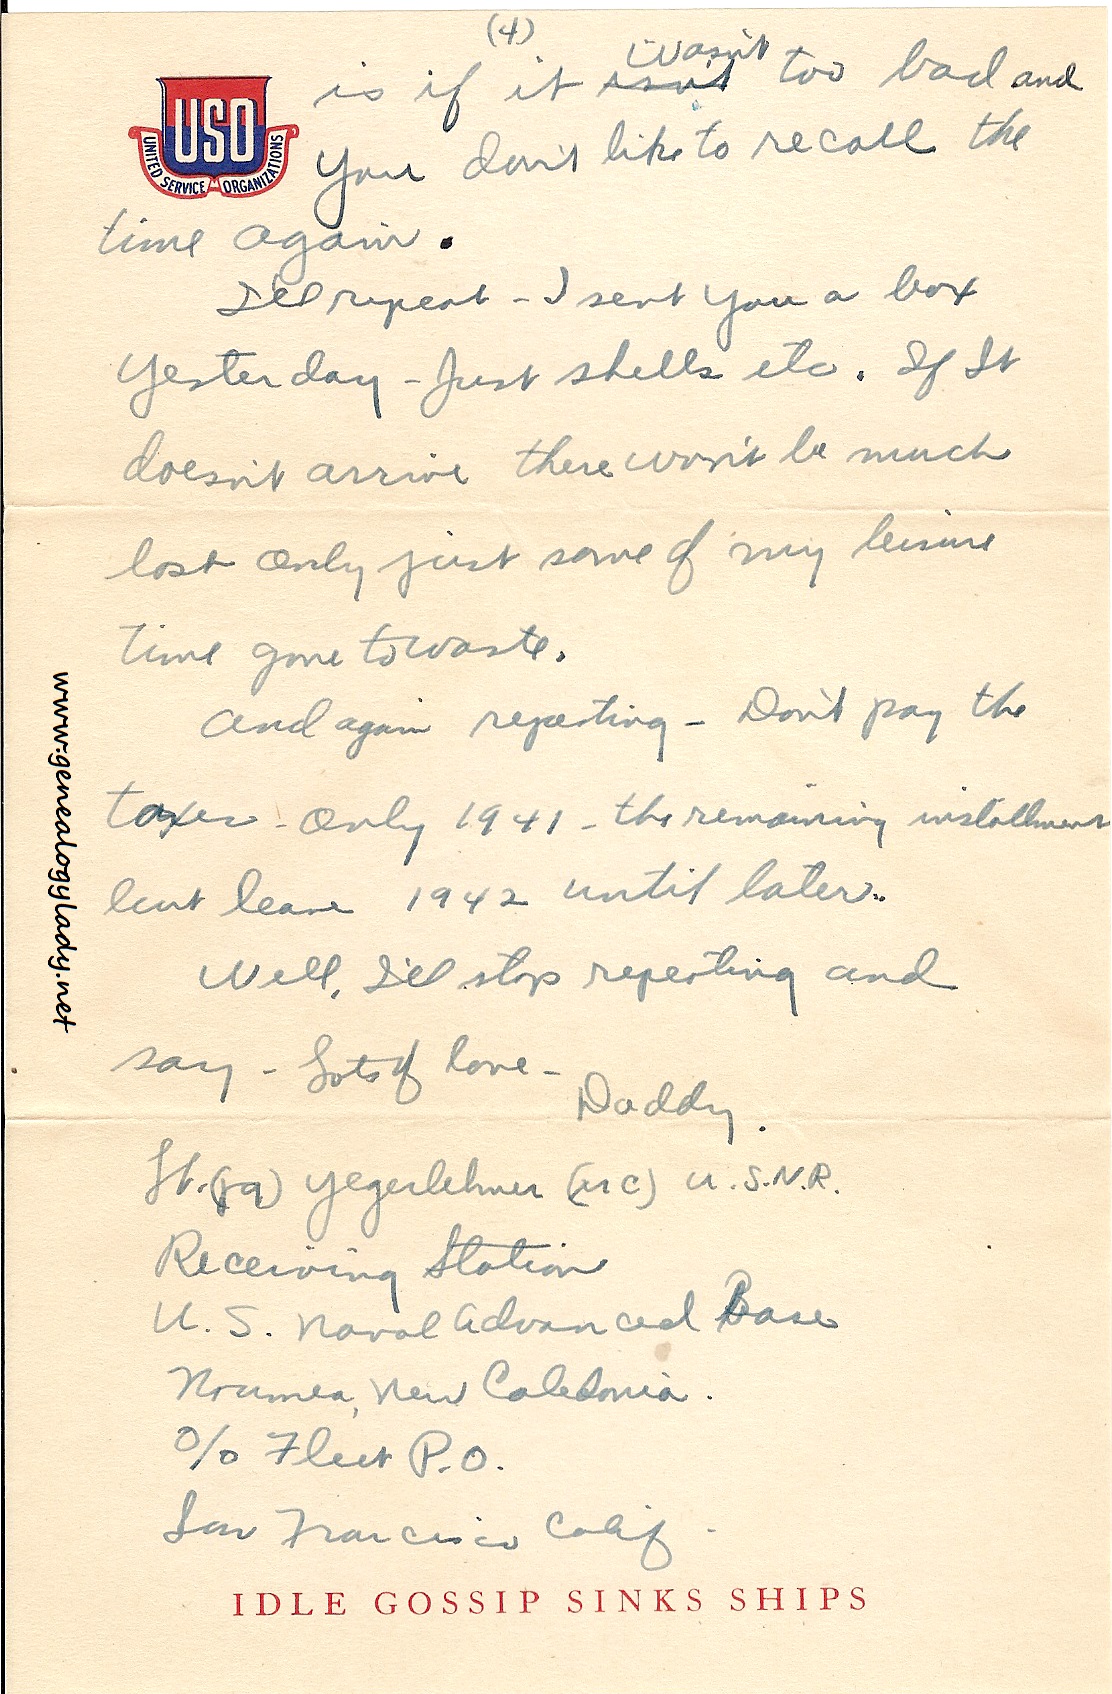 (4)
USO
UNITED SERVICE ORGANIZATIONS
wasn't
is if it isn't too bad and
you don't like to recall the
time again.
I'll repeat - I sent you a box
yesterday - Just shells etc. If It
doesn't arrive there won't be much
lost only just some of my leisure
time gone to waste.
And again repeating - Don't pay the
taxes - only 1941 - the remaining installment
but leave 1942 until later.
Well, I'll stop repeating and
say - Lots of love -
Daddy.
Lt. (jg) Yegerlehner (MC) U.S.N.R.
Receiving Station
U.S. Naval Advanced Base
Noumea, New Caledonia.
c/o Fleet P.O.
San Francisco Calif.
IDLE GOSSIP SINKS SHIPS
www.genealogylady.net